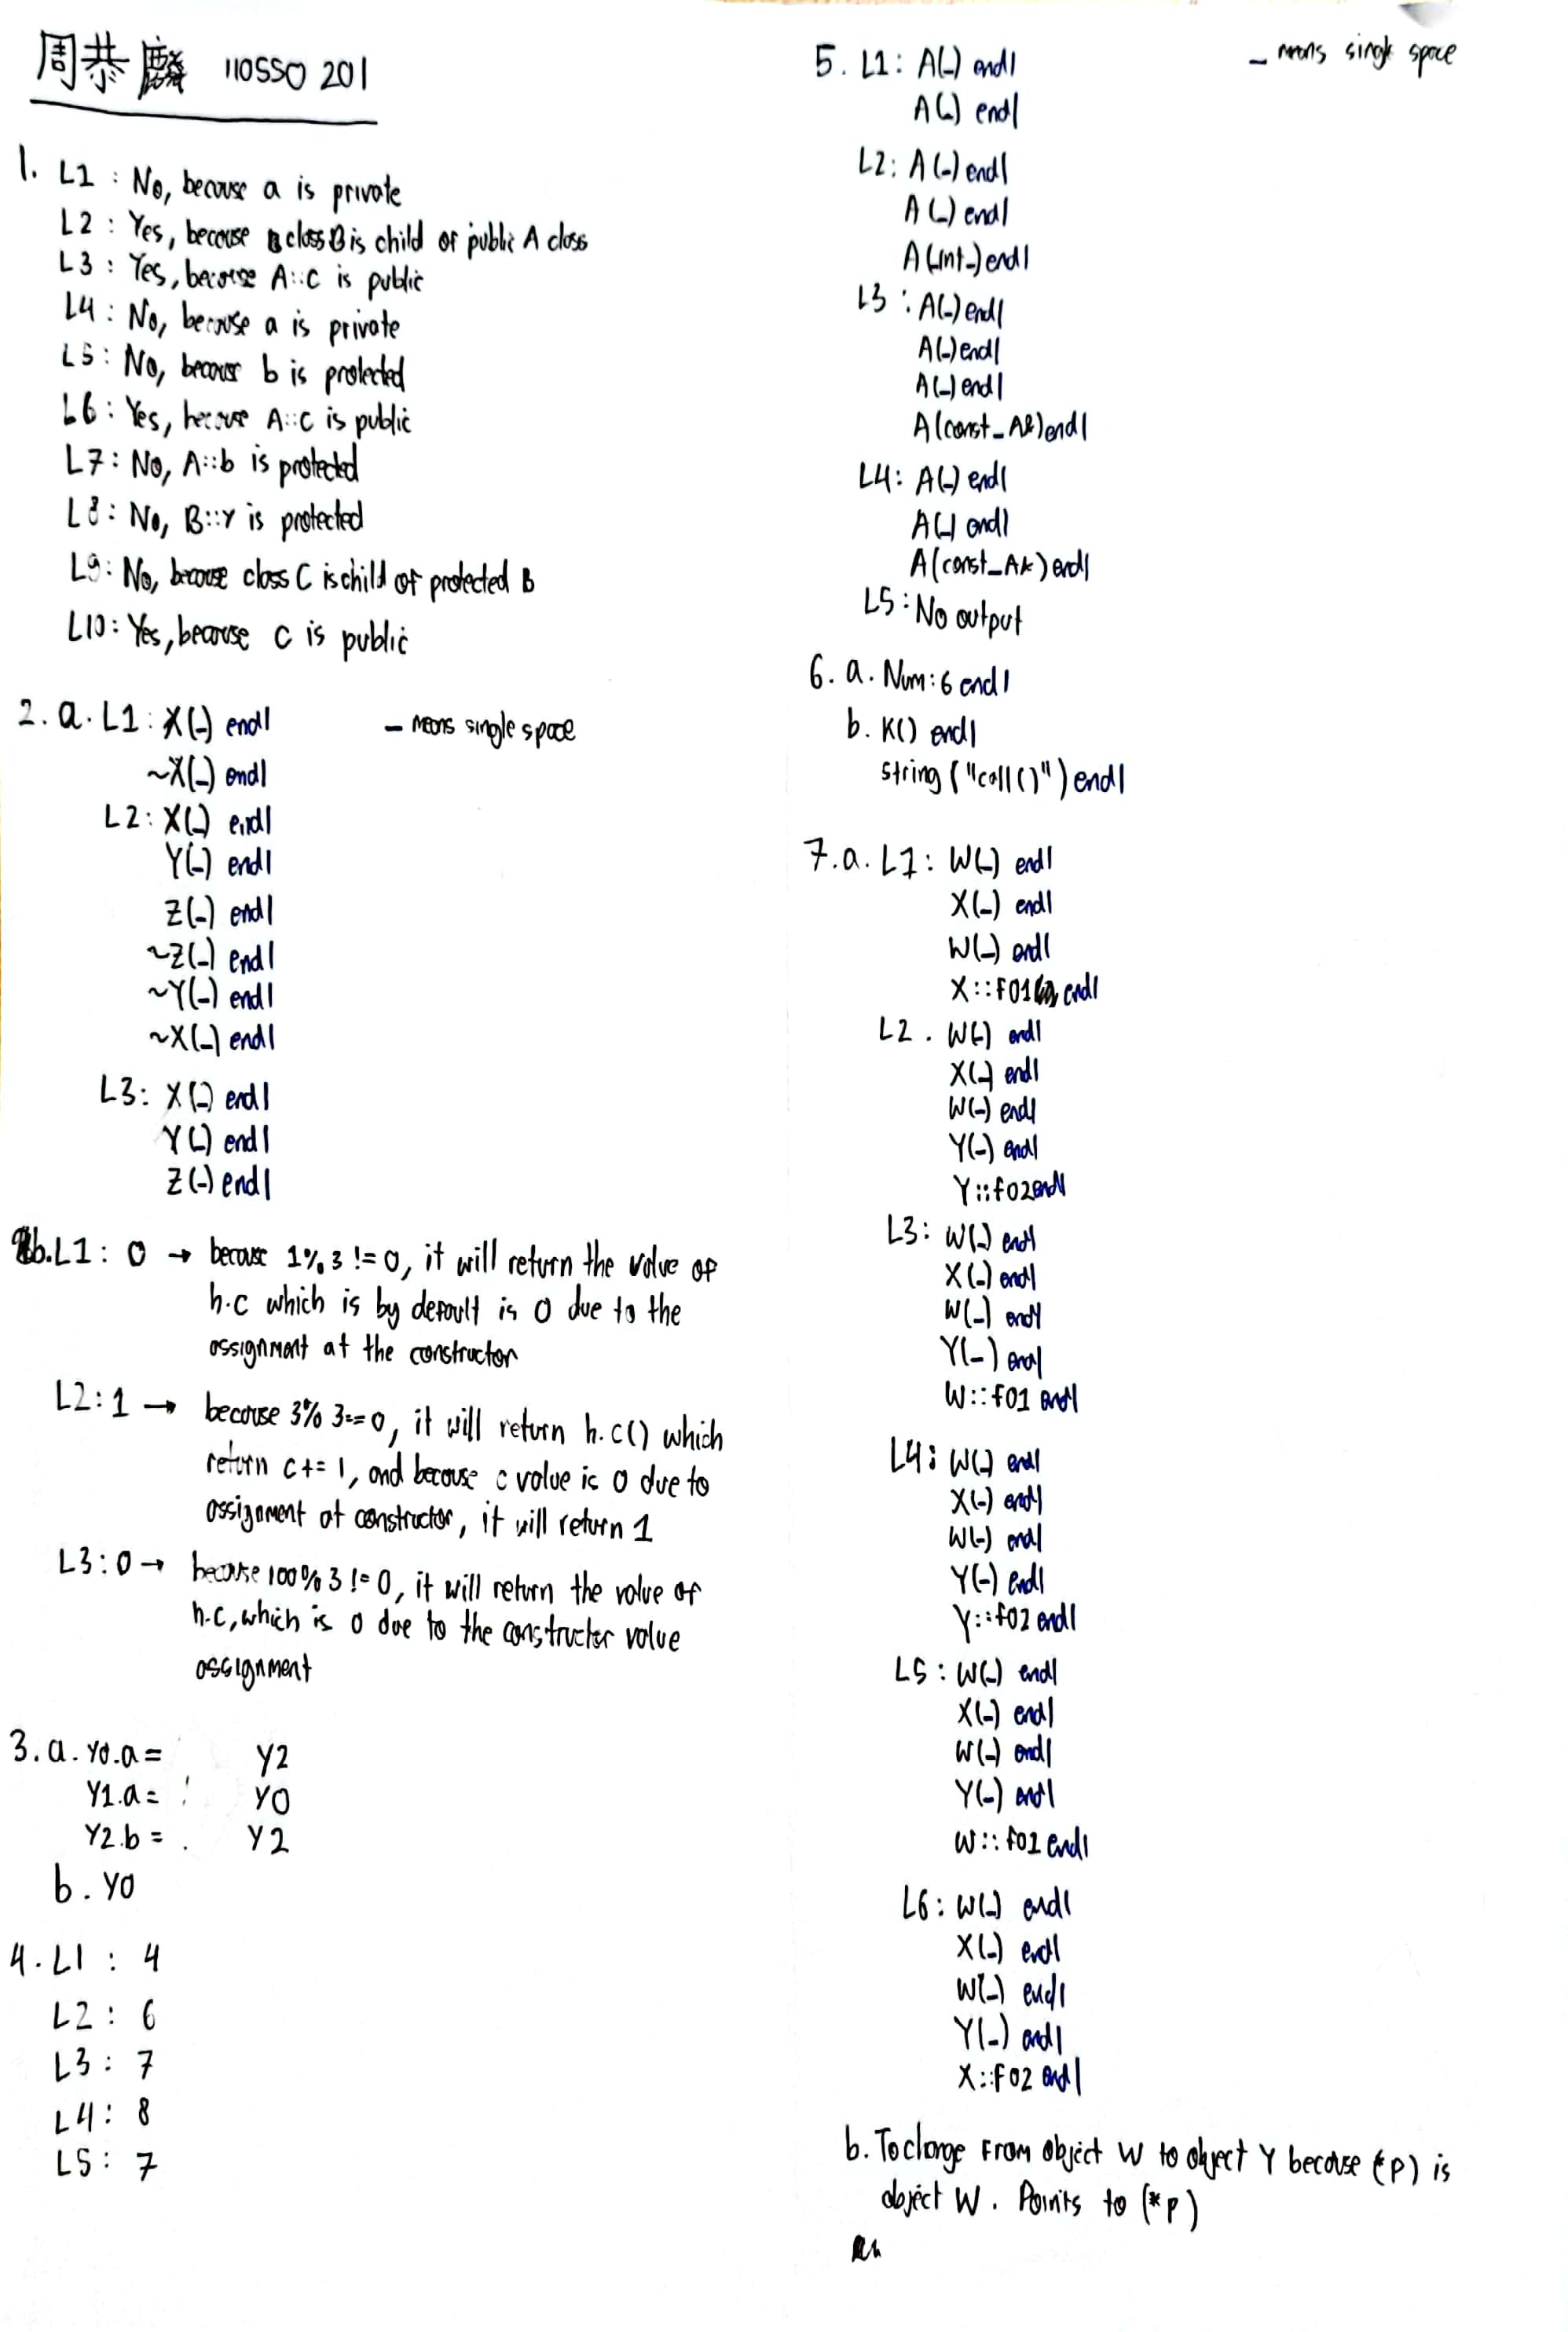 周恭麟 110550201
1. L1 : No, because a is private
L2 : Yes, because class B is child of public A class
L3 : Yes, because A::C is public
L4 : No, because a is private
L5 : No, because b is protected
L6 : Yes, because A::C is public
L7 : No, A::b is protected
L8 : No, B::Y is protected
L9 : No, because class C is child of protected B
L10 : Yes, because C is public
2. a. L1 : X(_) endl
_ means single space
~X(_) endl
L2 : X(_) endl
Y(_) endl
Z(_) endl
~Z(_) endl
~Y(_) endl
~X(_) endl
L3: X(_) endl
Y(_) endl
Z(_) endl
b. L1 : 0 → because 1%3 != 0, it will return the value of
h.c which is by default is 0 due to the
assignment at the constructor
L2 : 1 → because 3%3==0, it will return h.c() which
return c+=1, and because c value is 0 due to
assignment at constructor, it will return 1
L3 : 0 → because 100%3 != 0, it will return the value of
h.c, which is 0 due to the constructor value
assignment
3. a. Y0.a = Y2
Y1.a = Y0
Y2.b = Y2
b. Y0
4. L1 : 4
L2 : 6
L3 : 7
L4 : 8
L5 : 7
5. L1 : A(_) endl
_ means single space
A(_) endl
L2: A(_) endl
A(_) endl
A(_int_) endl
L3 : A(_) endl
A(_) endl
A(_) endl
A(const_A&) endl
L4: A(_) endl
A(_) endl
A(const_A&) endl
L5 : No output
6. a. Num:6 endl
b. K() endl
string("call()") endl
7. a. L1 : W(_) endl
X(_) endl
W(_) endl
X::f01 endl
L2. W(_) endl
X(_) endl
W(_) endl
Y(_) endl
Y::f02 endl
L3: W(_) endl
X(_) endl
W(_) endl
Y(_) endl
W::f01 endl
L4: W(_) endl
X(_) endl
W(_) endl
Y(_) endl
Y::f02 endl
L5 : W(_) endl
X(_) endl
W(_) endl
Y(_) endl
W::f01 endl
L6 : W(_) endl
X(_) endl
W(_) endl
Y(_) endl
X::f02 endl
b. To change from object W to object Y because (*p) is
object W. Points to (*p)